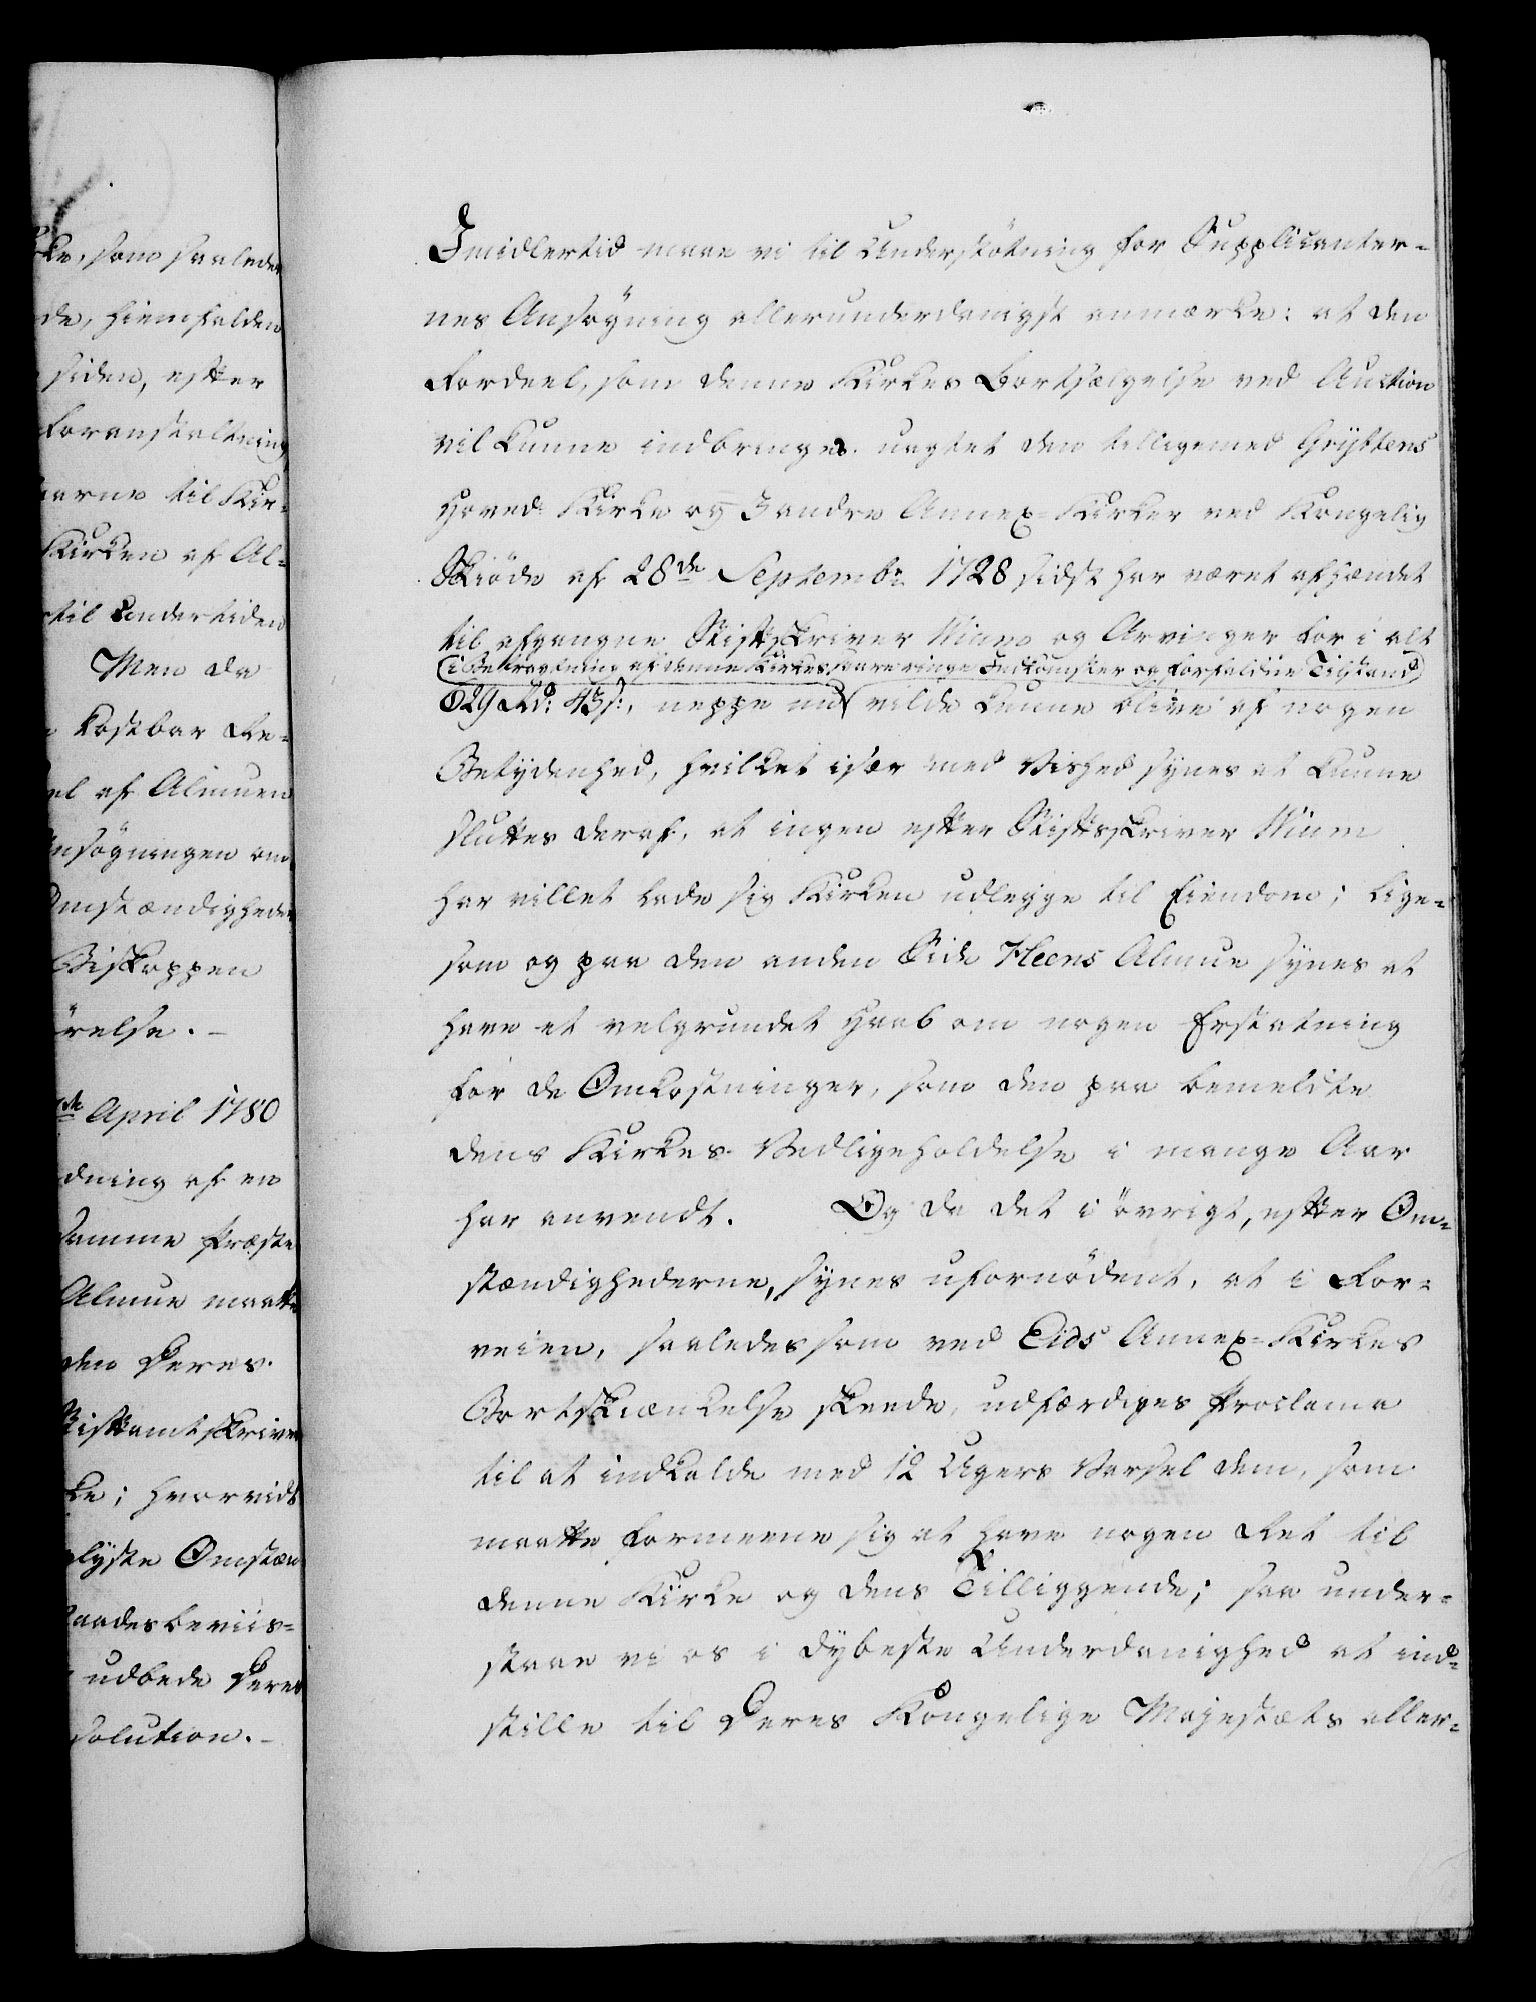 ke, som saaledes
de, hiemfalden
siden, efter
Foranstaltning
til Kir-
Kirken af Al-
til undertiden
Men da
kostbar Re-
el af Almuen
nsøgningen om
Omstændigheder
Biskoppen
relse. -
de April 1780
dning af en
samme Præste
Almue maatte
den Deres
Stiftamtskriver
ke; hvorvidt
lyste Omstæn
aadesbeviis-
udbede Deres
solution. -
Imidlertid maae vi til Understøtning for Supplicanter-
nes Ansøgning allerunderdanigst anmærke: at den
Fordeel, som denne Kirkes Bortsælgelse ved Auction
vil kunne indbringe, uagtet den tilligemed Gryttens
Hoved-Kirke og 3 andre Annex-Kirker ved Kongelig
Skiøde af 28de Septembr. 1728 sidst har været afhændet
til afgangne Stiftsskriver og Arvinger for i alt
(i Betragtning af denne Kirkes saare ringe Indkomster og forfaldne Tilstand)
829 Rd: 43 s:, neppe nu vilde kunne blive af nogen
Betydenhed, hvilket især med Vished synes at kunne
sluttes deraf, at ingen efter Stiftsskriver
har villet lade sig Kirken udlegge til Eiendom; lige-
som og paa den anden Side Heens Almue synes at
have et velgrundet Haab om nogen Erstatning
for de Omkostninger, som den paa bemeldte
dens Kirkes Vedligeholdelse i mange Aar
har anvendt. Og da det i øvrigt, efter Om-
stændighederne, synes ufornødent, at i For-
veien, saaledes som ved Eids Annex-Kirkes
Bortskiænkelse skeede, udfærdiges Proclama
til at indkalde med 12 Ugers Varsel dem, som
maatte formeene sig at have nogen Ret til
denne Kirke og dens Tilliggende; saa under-
staae vi os i dybeste Underdanighed at ind-
stille til Deres Kongelige Majestæts aller-